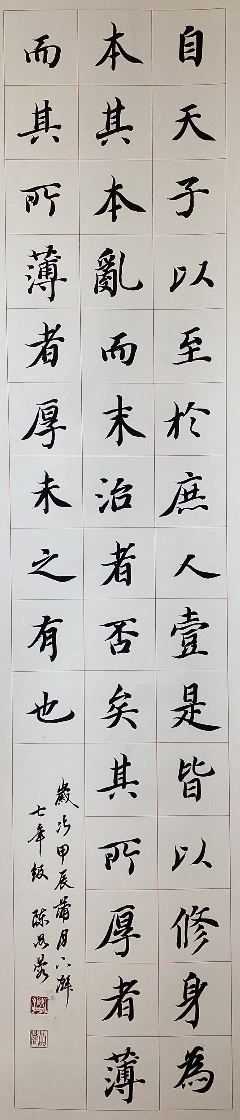 自天子以至於庶人壹是皆以修身為
本其本亂而末治者否矣其所厚者薄
而其所薄者厚未之有也
歲次甲辰蒲月
七年級